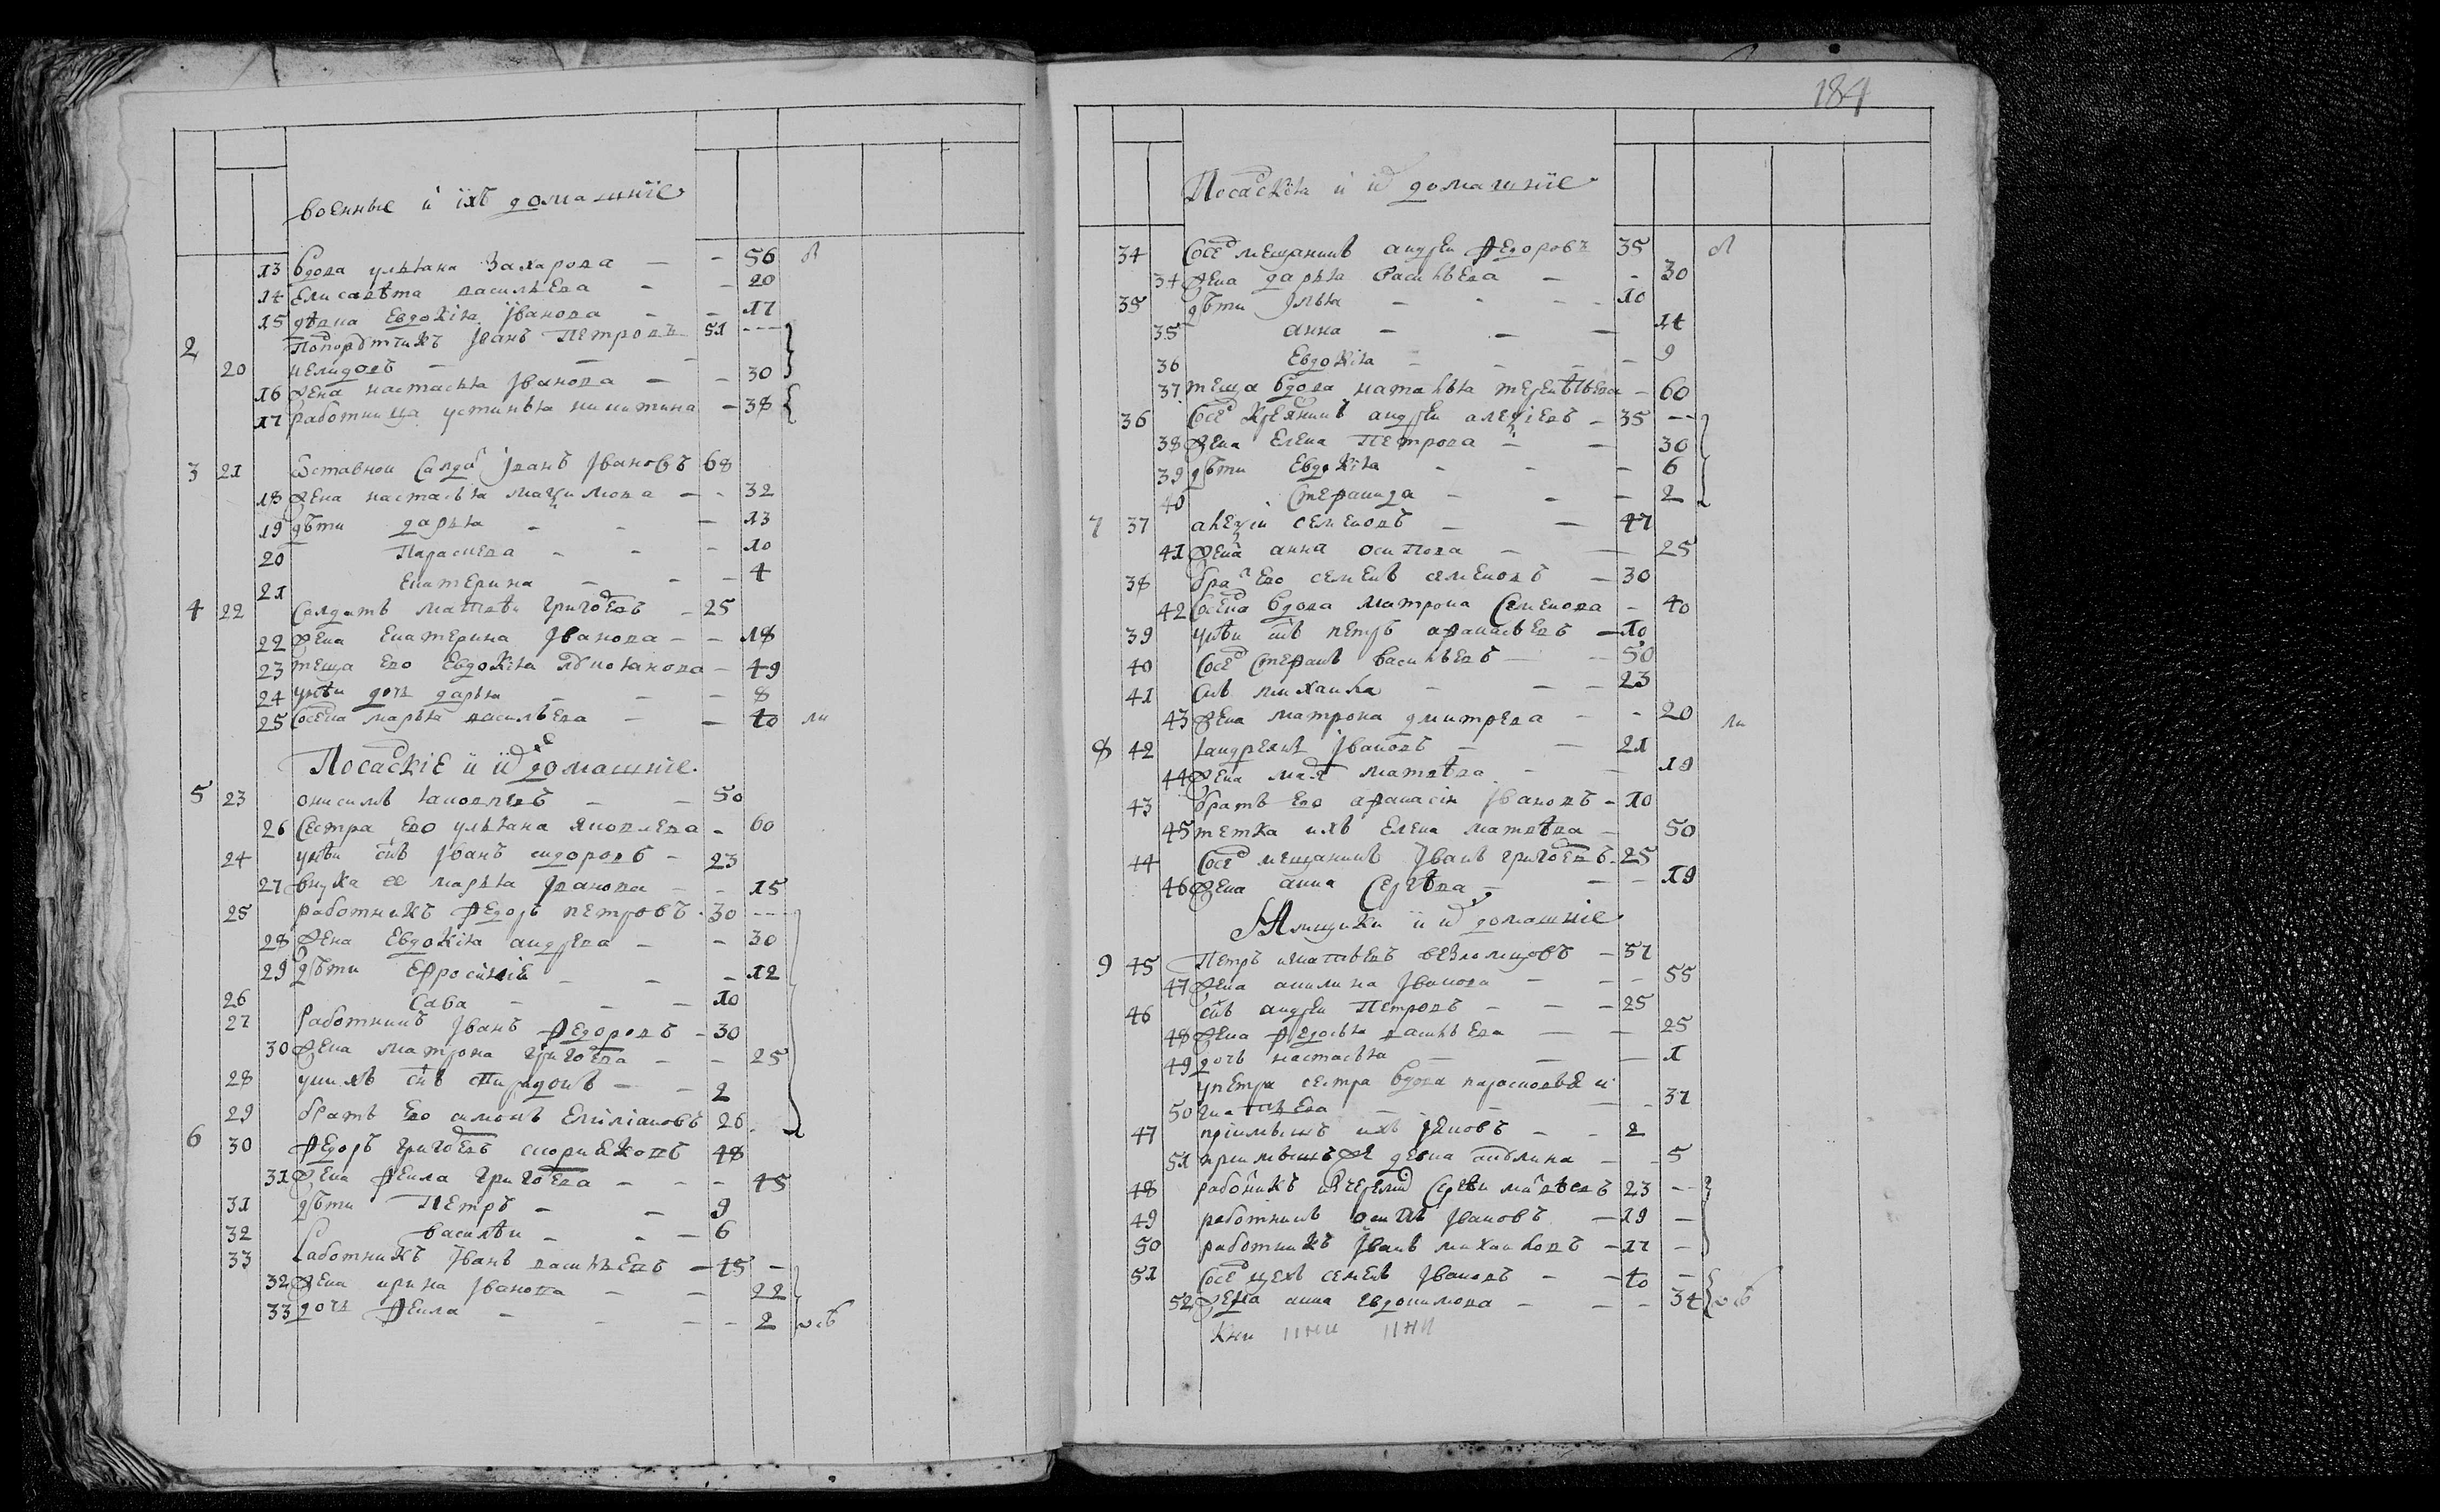 военные и ихъ домашніе
13 вдова ульяна Захарова — - 56
14 Елисавета васильева - - 20
15 девка Евдокия Iванова - - 17
2 Iванъ Петровъ 51 ---
20 нелидовъ — — -
16 жена настасья Iванова — - 30
17 работница устинья никитина - 38
3 21 ѿставной салдат Iванъ Iвановъ 68
18 жена настасья маѯимова - - 32
19 дѣти дарья - - — 13
20 Параскева - - - 10
21 Екатерина - - - 4
4 22 Салдатъ матвѣи григоревъ - 25
22 жена Екатерина Iванова - - 18
23 теща ево Евдокия - 49
24 дочь дарья - - - 8
25 марья васильева - — 40
Посадскіе и их домашніе.
5 23 онисимъ яковлевъ - - 50
26 Сестра ево ульяна яковлева - 60
24 у нѣи сн҃ъ Iванъ сидоровъ - 23
27 внука ее марья Iванова - - 15
25 работникъ Ѳедоръ петровъ - 30 ---
28 жена Евдокия андреева - - 30
29 дѣти - - - 12
26 Сава - - - 10
27 работникъ Iванъ Ѳедоровъ - 30
30 жена матрона григорева - - 25
28 у нихъ сн҃ъ спиридонъ - - 2
29 братъ Ево симонъ Емілиановъ 26
6 30 Ѳедоръ григоревъ 48
31 жена Ѳекла григорева - - - 45
31 дѣти Петръ - - 9
32 василѣи - - - 6
33 работникъ Iванъ васильевъ - 45 -
32 жена ирина Iванова - - 22
33 дочь Ѳекла - - - - 2
184
Посадскія и их домашніе
34 Сосед мещанинъ андреи Ѳедоровъ 35
34 жена дарья васильева — - 30
35 дѣти Iлья - - - - 10
35 анна - - — 14
36 Евдокия - - - - 9
37 теща вдова наталья - 60
36 Сосед андреи алеѯіевъ - 35 --
38 жена Елена Петрова - - 30
39 дѣти Евдокия - - - 6
40 Стефанида - - - 2
7 37 алеѯіи семеновъ - — 47
41 жена анна осипова - — 25
38 брат ево семенъ семеновъ - 30
42 вдова матрона Семенова - 40
39 у нѣи сн҃ъ петръ афанасьевъ - 10
40 Сосед Стефанъ васильевъ - - 50
41 сн҃ъ михаила - - - 23
43 жена матрона дмитрева - - 20
8 42 Iвановъ - — 21
44 жена матвѣва - - 19
43 братъ ево афанасіи Iвановъ - 10
45 тетка ихъ Елена матвѣва - 50
44 Сосед мещанинъ Iванъ григоревъ - 25
46 жена анна Сергѣва - - - 19
Ямщики и их домашніе
9 45 Петръ - 57
47 жена акилина Iванова - - - 55
46 сн҃ъ андреи Петровъ - - - 25
48 жена Ѳедосья васильева — — 25
49 дочь настасья — — — 1
у петра сестра вдова
50 — - — - 37
47 - - 2
51 - - 5
48 23 --
49 работникъ осипъ Iвановъ - 19 -
50 работникъ Iванъ михаиловъ - 17 -
51 Сосед семенъ Iвановъ - - 40 -
52 жена анна евдокимова - - - 34